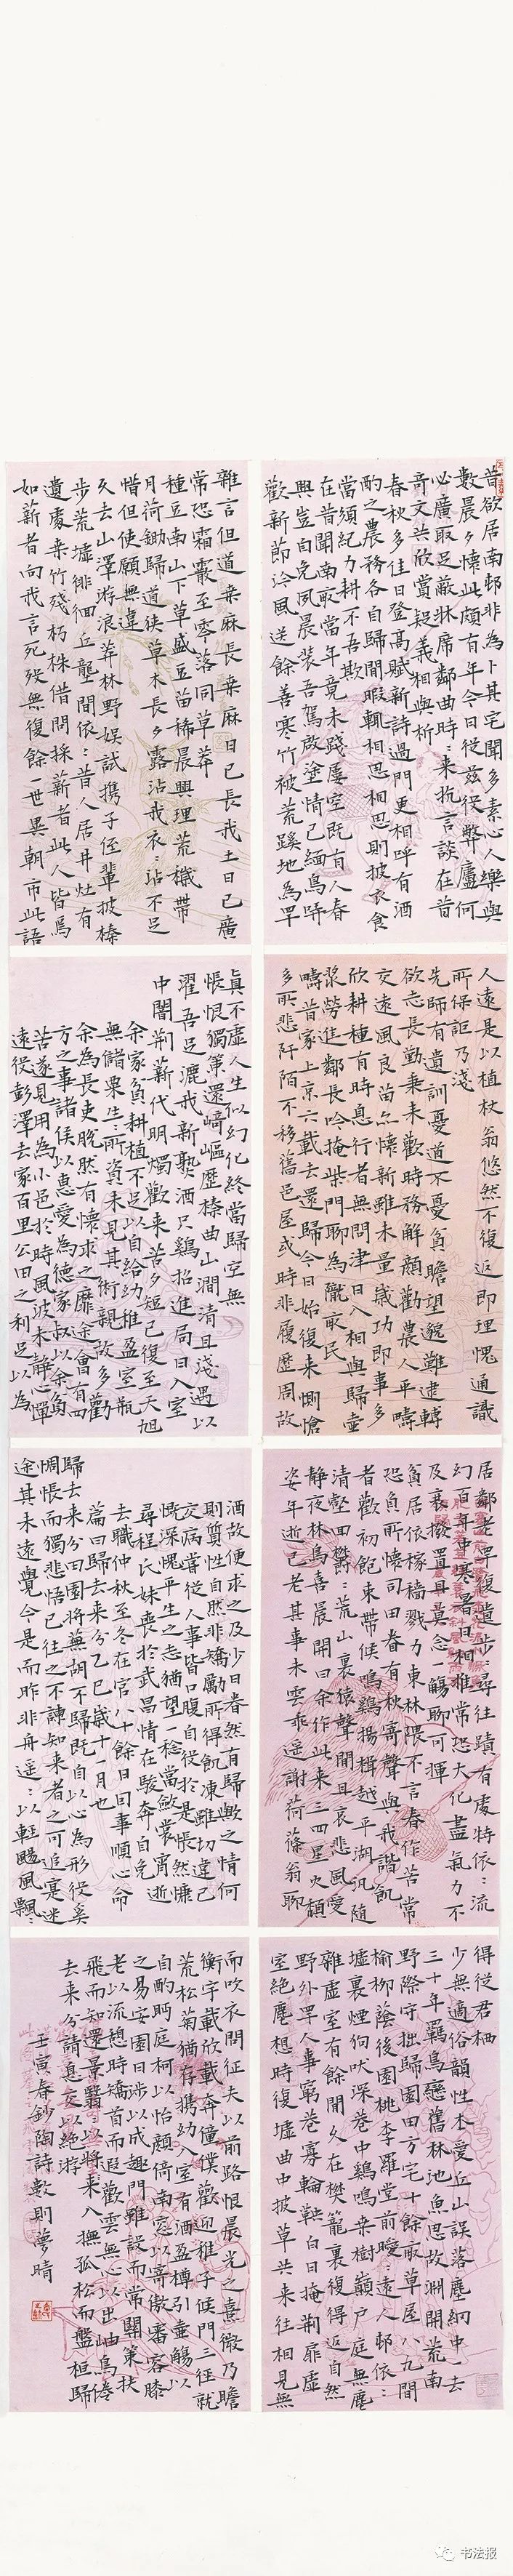 昔欲居南邨非為卜其宅聞多素心人樂與
數晨夕懷此頗有年今日從茲役弊廬何
必廣取足蔽牀席鄰曲時〻來抗言談在昔
奇文共欣賞疑義相與析
春秋多佳日登高賦新詩過門更相呼有酒
酌之農務各自歸閒暇輒相思相思則披衣食
當須紀力耕不吾欺
在昔聞南畝當年竟未踐屢空既有人春
興豈自免夙晨裝吾駕啟塗情已緬鳥哢
歡新節泠風送餘善寒竹被荒蹊地為罕
人遠是以植杖翁悠然不復返即理愧通識
所保詎乃淺
先師有遺訓憂道不憂貧瞻望邈難逮轉
欲志長勤秉耒歡時務解顏勸農人平疇
交遠風良苗亦懷新雖未量歲功即事多
欣耕種有時息行者無問津日入相與歸壺
漿勞進鄰長吟掩柴門聊為隴畝民
疇昔家上京六載去還歸今日始復來惻愴
多所悲阡陌不移舊邑屋或時非履歷周故
居鄰老罕復遺步步尋往蹟有處特依〻流
幻百年中寒暑日相推常恐大化盡氣力不
及衰撥置且莫念一觴聊可揮
貧居依稼穡戮力東林隈不言春作苦常
恐負所懷司田眷有秋寄聲與我諧飢
者歡初飽束帶候鳴雞揚楫越平湖汎隨
清壑迴欝〻荒山裏猿聲閒且哀悲風愛
靜夜林鳥喜晨開曰余作此來三四星火頹
姿年逝已老其事未雲乖遙謝荷蓧翁聊
得從君栖
少無適俗韻性本愛丘山誤落塵網中一去
三十年羈鳥戀舊林池魚思故淵開荒南
野際守拙歸園田方宅十餘畝草屋八九間
榆柳蔭後園桃李羅堂前曖遠人邨依〻
墟裏煙狗吠深巷中雞鳴桑樹巔戶庭無塵
雜虛室有餘閒久在樊籠裏復得返自然
野外罕人事窮巷寡輪鞅白日掩荊扉虛
室絕塵想時復墟曲中披草共來往相見無
雜言但道桑麻長桑麻日已長我土日已廣
常恐霜霰至零落同草莽
種豆南山下草盛豆苗稀晨興理荒穢帶
月荷鋤歸道狹草木長夕露沾我衣〻沾不足
惜但使願無違
久去山澤游浪莽林野娛試攜子侄輩披榛
步荒墟徘徊丘壟間依〻昔人居井灶有
遺處桑竹殘朽株借問採薪者此人皆焉
如薪者向我言死歿無復餘一世異朝市此語
真不虛人生似幻化終當歸空無
悵恨獨策還崎嶇歷榛曲山澗清且淺遇以
濯吾足漉我新熟酒只雞招進局日入室
中闇荊薪代明燭歡來苦夕短已復至天旭
余家貧耕植不足以自給幼稚盈室瓶
無儲粟生〻所資未見其術親故多勸
余為長吏脫然有懷求之靡途會有四
方之事諸侯以惠愛為德家叔以余貧
苦遂見用為小邑於時風波未靜心憚
遠役彭澤去家百里公田之利足以為
酒故便求之及少日眷然有歸歟之情何
則質性自然非矯勵所得飢凍雖切違己
交病嘗從人事皆口腹自役於是悵然慷
慨深愧平生之志猶望一稔當斂裳宵逝
尋程氏妹喪於武昌情在駿奔自免
去職仲秋至冬在官八十餘日因事順心命
篇曰歸去來兮乙巳歲十月也
歸去來兮田園將蕪胡不歸既自以心為形役奚
惆悵而獨悲悟已往之不諫知來者之可追寔迷
途其未遠覺今是而昨非舟遥〻以輕颺風飄〻
而吹衣問征夫以前路恨晨光之熹微乃瞻
衡宇載欣載奔僮僕歡迎稚子候門三徑就
荒松菊猶存攜幼入室有酒盈樽引壺觴以
自酌眄庭柯以怡顏倚南窗以寄傲審容膝
之易安園日涉以成趣門雖設而常關策扶
老以流憩時矯首而遐觀雲無心以出岫鳥倦
飛而知還景翳翳以將入撫孤松而盤桓歸
去來兮請息交以絕游
壬寅春鈔陶詩數則夢晴
书法报